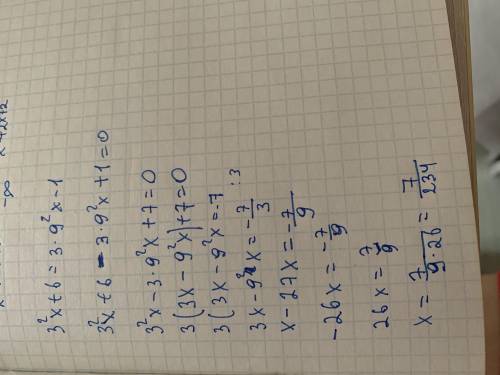 3²x+6=3·9²x-1
3²x+6-3·9²x+1=0
3²x-3·9²x+7=0
3(3x-9²x)+7=0
3(3x-9²x=-7 :3
3x-9²x=-7/3
x-27x=-7/9
-26x=-7/9
26x=7/9
x=7/9·26=7/234